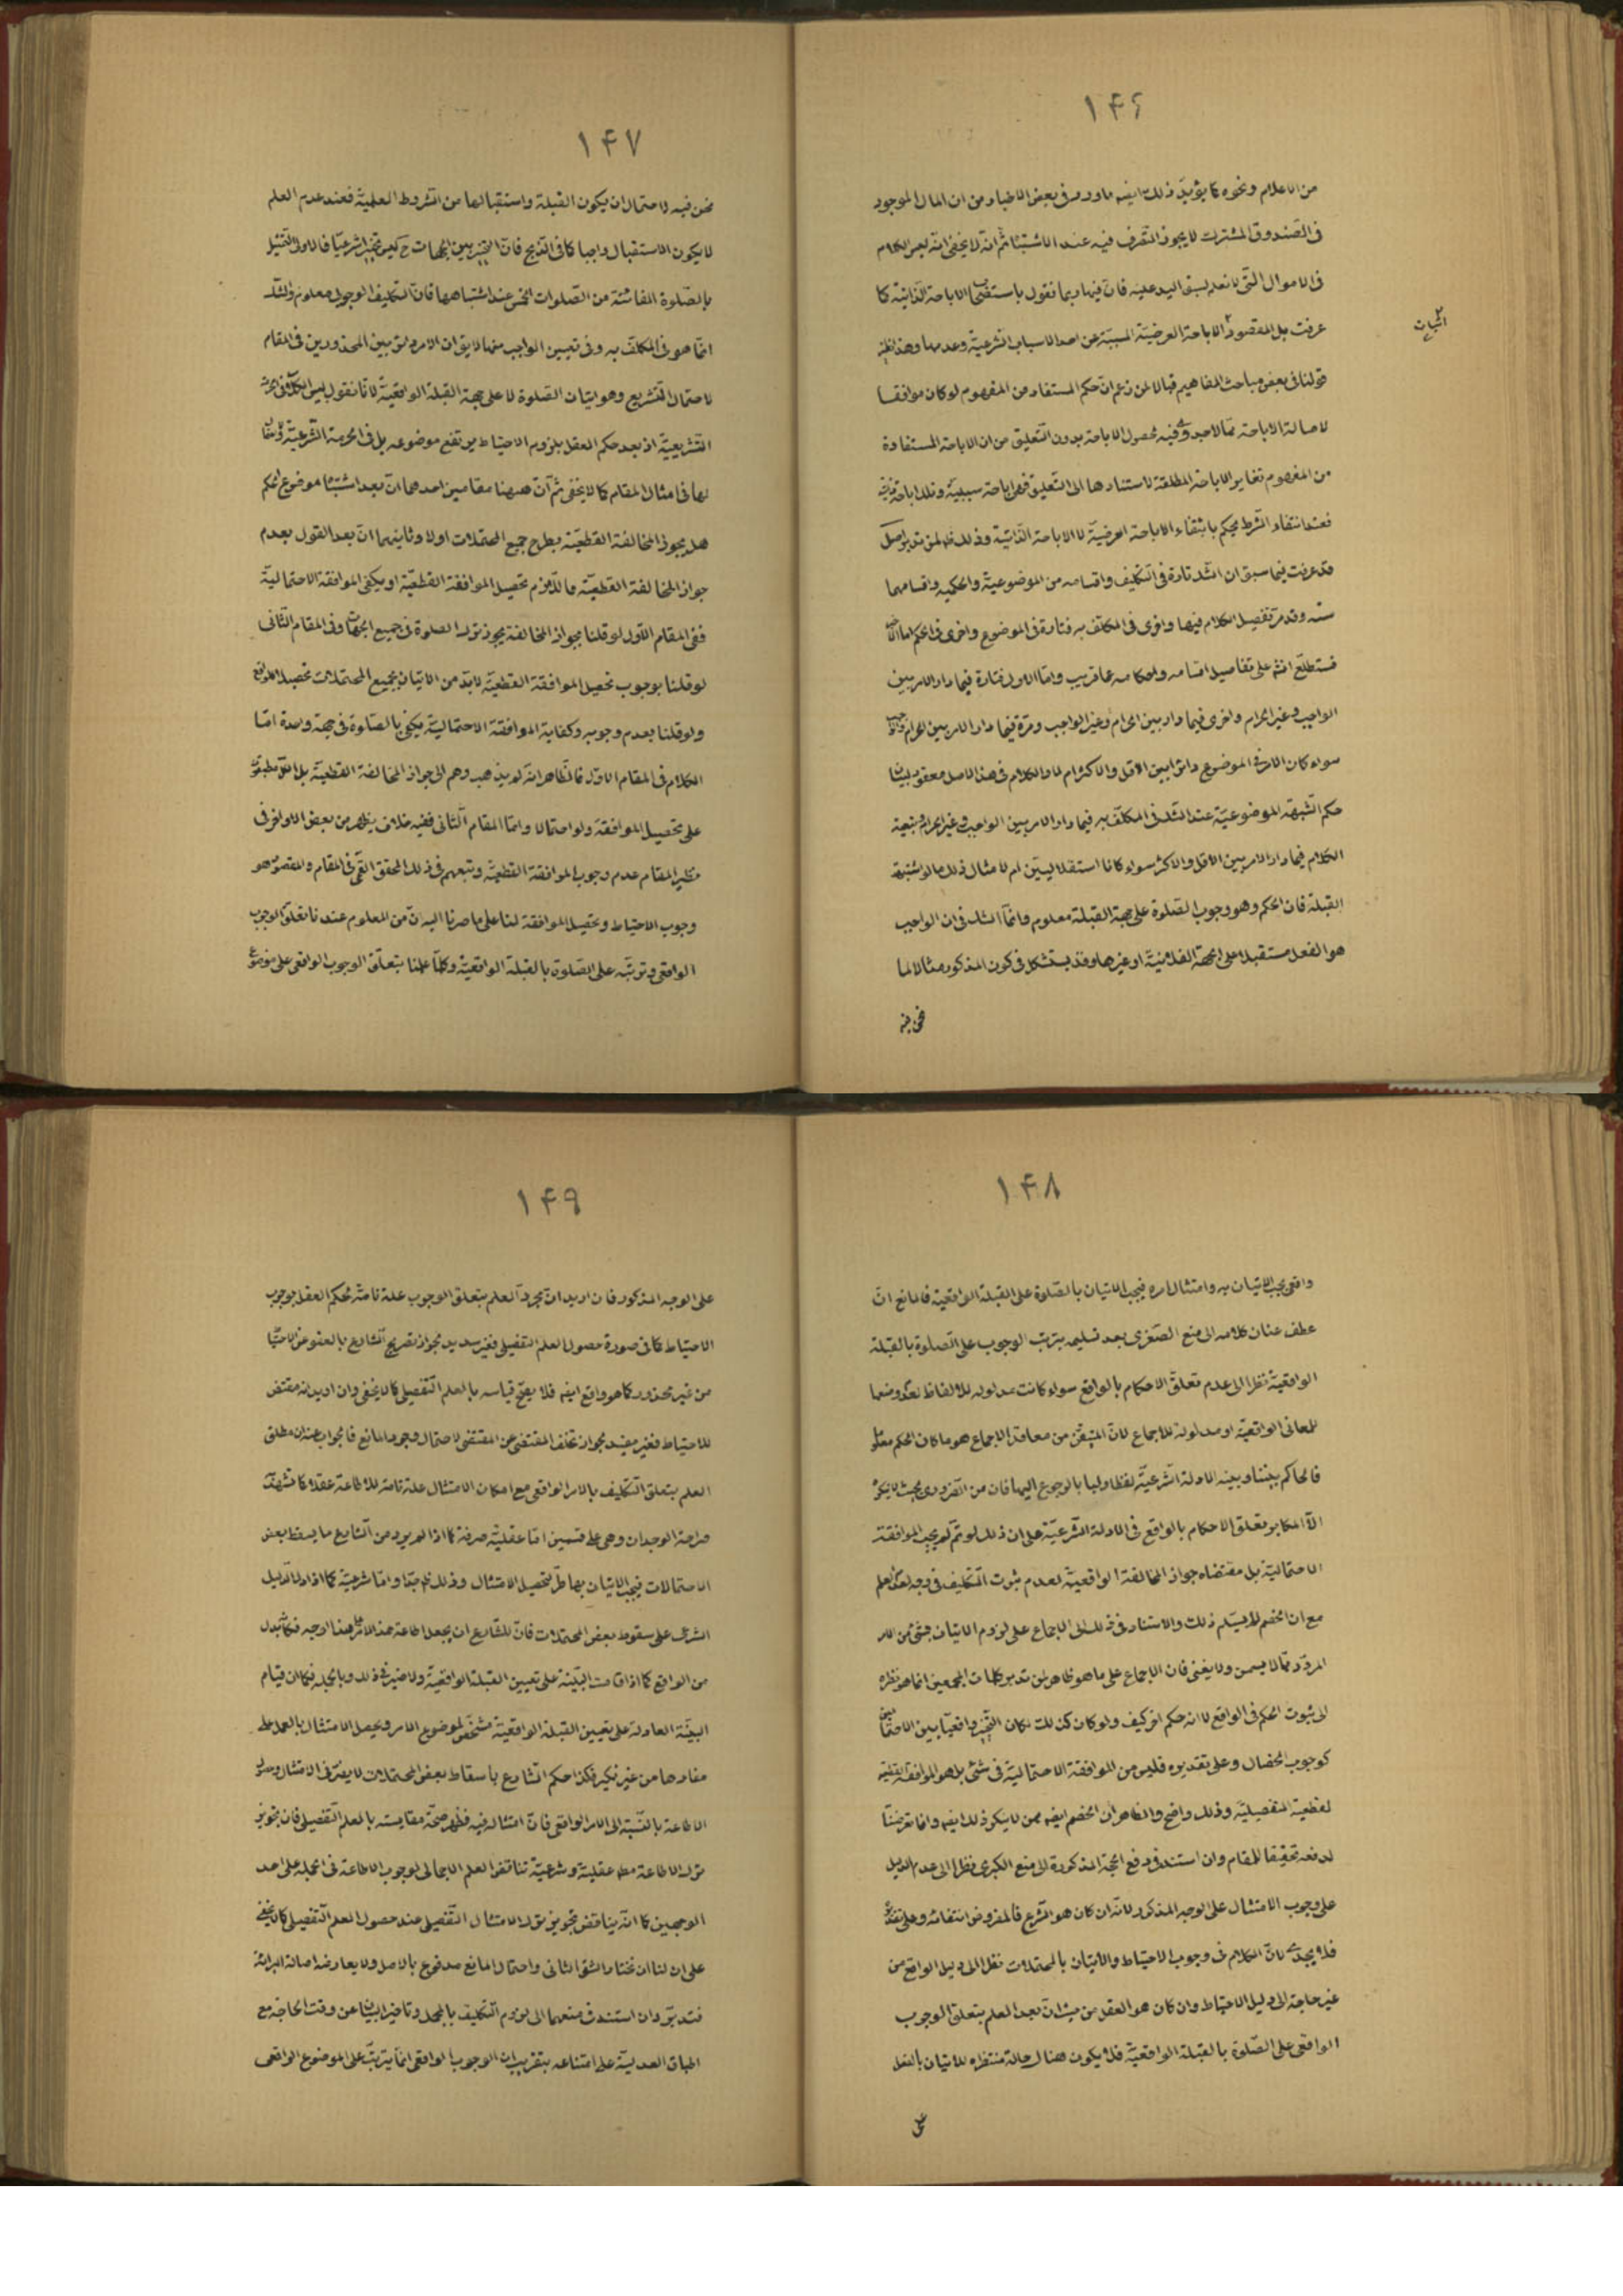 ١۴۶
من الاعلام ونحوه كما يؤيد ذلك ايضه ماورد فى بعض الاخبار من ان المال الموجود
فى الصندوق المشترك لا يجوز التصرف فيه عند الاشتباه ثم انه لا يخفى انه ليس الكلام
فى الاموال التى لا نعلم بسبق اليد عليه فان فيها ربما نقول باستصحاب الاباحة الذاتية كما
عرفت بل المقصود اثبات الاباحة العرضية المسببة عن احد الاسباب الشرعية وعدمها وهذا نظير
قولنا فى بعض مباحث المفاهيم قبالا لمن زعم ان حكم المستفاد من المفهوم لو كان موافقا
لاصالة الاباحة مما لا جدوى فيه لحصول الاباحة بدون التعليق من ان الاباحة المستفادة
من المفهوم تغاير الاباحة المطلقة لاستنادها الى التعليق فهى اباحة سببية وتلك اباحة ذاتية
فعند انتفاء الشرط يحكم بانتفاء الاباحة العرضية لا الاباحة الذاتية وذلك ظ لمن تدبر اصل
قد عرفت فيما سبق ان الشك تارة فى التكليف واقسامه من الموضوعية والحكمية واقسامهما
ستة وقد مر تفصيل الكلام فيها واخرى فى المكلف به فتارة فى الموضوع واخرى فى الحكم اما الثانى
فستطلع انش على تفاصيل اقسامه واحكامه عما قريب واما الاول فتارة فيما دار الامر بين
الواجب وغير الحرام واخرى فيما دار بين الحرام وغير الواجب ومرة فيما دار الامر بين الحرام والواجب
سواء كان الامر فى الموضوع دائرا بين الاقل والاكثر ام لا والكلام فى هذا الاصل معقود لبيان
حكم الشبهة الموضوعية عند الشك فى المكلف به فيما دار الامر بين الواجب وغير الحرام ويتبعه
الكلام فيما دار الامر بين الاقل والاكثر سواء كانا استقلاليين ام لا مثال ذلك ما لو اشتبهت
القبلة فان الحكم وهو وجوب الصلوة على جهة القبلة معلوم وانما الشك فى ان الواجب
هو الفعل مستقبلا على الجهة الفلانية او غيرها وقد يستشكل فى كون المذكور مثالا لما
نحن فيه
اثبات
١۴٧
نحن فيه لاحتمال ان يكون القبلة واستقبالها من الشروط العلمية فعند عدم العلم
لا يكون الاستقبال واجبا كما فى الذبح فان التخيير بين الجهات ح ليس تخييرا شرعيا فالاولى التمثيل
بالصلوة الفائتة من الصلوات الخمس عند اشتباهها فان التكليف الوجوبى معلوم والشك
انما هو فى المكلف به وفى تعيين الواجب منها لا يق ان الامر دائر بين المحذورين فى المقام
لاحتمال التشريع وهو اتيان الصلوة لا على جهة القبلة الواقعية لانا نقول ليس الكلام فى الحرمة
التشريعية اذ بعد حكم العقل بلزوم الاحتياط يرتفع موضوعه بل فى الحرمة الشرعية
لها فى امثال المقام كما لا يخفى ثم ان ههنا مقامين احدهما ان بعد اشتباه موضوع الحكم
هل يجوز المخالفة القطعية بطرح جميع المحتملات اولا وثانيهما ان بعد القول بعدم
جواز المخالفة القطعية هل اللازم تحصيل الموافقة القطعية او يكفى الموافقة الاحتمالية
ففى المقام الاول لو قلنا بجواز المخالفة يجوز ترك الصلوة فى جميع الجهات وفى المقام الثانى
لو قلنا بوجوب تحصيل الموافقة القطعية لابد من الاتيان بجميع المحتملات تحصيلا للواقع
ولو قلنا بعدم وجوبه وكفاية الموافقة الاحتمالية يكفى بالصلوة فى جهة واحدة اما
الكلام فى المقام الاول فالظاهر انه لم يذهب وهم الى جواز المخالفة القطعية بل الكل مطبقون
على تحصيل الموافقة ولو احتمالا واما المقام الثانى ففيه خلاف يظهر من بعض الاواخر فى
نظير المقام عدم وجوب الموافقة القطعية وتبعهم فى ذلك المحقق القمى فى المقام والمقصود هو
وجوب الاحتياط وتحصيل الموافقة لنا على ما صرنا اليه ان من المعلوم عندنا تعلق الوجوب
الواقعى وترتبه على الصلوة بالقبلة الواقعية وكلما علمنا بتعلق الوجوب الواقعى على موضوع
١۴٨
واقعى يجب الاتيان به وامتثال امره فيجب الاتيان بالصلوة على القبلة الواقعية فالمانع ان
عطف عنان كلامه الى منع الصغرى بعد تسليمه بترتب الوجوب على الصلوة بالقبلة
الواقعية نظرا الى عدم تعلق الاحكام بالواقع سواء كانت مدلولة للالفاظ لعدم وضعها
للمعانى الواقعية او مدلولة للاجماع لان المتيقن من معاقد الاجماع هو ما كان الحكم معلوما
فالحاكم بيننا وبينه الادلة الشرعية لفظا ولبا بالرجوع اليها فان من الضرورى بحيث لا ينكره
الا المكابر تعلق الاحكام بالواقع فى الادلة الشرعية على ان ذلك لو تم لم يجب الموافقة
الاحتمالية بل مقتضاه جواز المخالفة الواقعية لعدم ثبوت التكليف فى
مع ان الخصم لا يسلم ذلك والاستناد فى ذلك الى الاجماع على لزوم الاتيان بشئ من الامر
المردد مما لا يسمن ولا يغنى فان الاجماع على ما هو ظاهر لمن تدبر كلمات المجمعين انما هو نظره
الى ثبوت الحكم فى الواقع لا انه حكم اخر كيف ولو كان كذلك لكان التخيير واقعيا بين الاحتمالين
كوجوب الخصال وعلى تقديره فليس من الموافقة الاحتمالية فى شئ بل هو الموافقة القطعية
لقطعية التفصيلية وذلك واضح والظاهر ان الخصم ايضه ممن لا ينكر ذلك ايضه وانما تعرضنا
لدفعه تحقيقا للمقام وان استند فى دفع الحجة المذكورة الى منع الكبرى نظرا الى عدم الدليل
على وجوب الامتثال على الوجه المذكور لانه ان كان هو الشرع فالمفروض انتفائه وعلى تقديره
فلا يجدى لان الكلام فى وجوب الاحتياط والاتيان بالمحتملات نظرا الى دليل الواقع من
غير حاجة الى دليل الاحتياط وان كان هو العقل من حيث ان بعد العلم بتعلق الوجوب
الواقعى على الصلوة بالقبلة الواقعية فلا يكون هناك حالة منتظره للاتيان بالفعل
على
١۴٩
على الوجه المذكور فان اريد ان مجرد العلم بتعلق الوجوب علة تامة لحكم العقل بوجوب
الاحتياط كما فى صورة حصول العلم التفصيلى فغير سديد لجواز تصريح الشارع بالعفو عن الاحتياط
من غير محذور كما هو واقع ايضه فلا يصح قياسه بالعلم التفصيلى كما لا يخفى وان اريد انه مقتض
للاحتياط فغير مفيد لجواز تخلف المقتضى عن المقتضى لاحتمال وجود المانع فالجواب عنه ان مطلق
العلم بتعلق التكليف بالامر الواقعى مع امكان الامتثال علة تامة للاطاعة عقلا كما تشهد
صراحة الوجدان وهى على قسمين اما عقلية صرفة كما اذا لم يرد من الشارع ما يسقط بعض
الاحتمالات فيجب الاتيان بها طرا لتحصيل الامتثال وذلك ظ جدا واما شرعية كما اذا دل الدليل
الشرعى على سقوط بعض المحتملات فان للشارع ان يجعل اطاعة هذا الامر بهذا الوجه فكانه بدل
من الواقع كما اذا قامت البينة على تعيين القبلة الواقعية ولا ضير فى ذلك وبالجملة فكما ان قيام
البينة العادلة على تعيين القبلة الواقعية مشخص لموضوع الامر ويحصل الامتثال بالعمل على
مفادها من غير نكير فكذا حكم الشارع باسقاط بعض المحتملات لا يضر فى الامتثال وصدق
الاطاعة بالنسبة الى الامر الواقعى فان امتثاله فيه فظهر صحة مقايسته بالعلم التفصيلى فان تجويز
ترك الاطاعة مط عقلية وشرعية تناقض العلم الاجمالى لوجوب الاطاعة فى الجملة على احد
الوجهين كما انه يناقض تجويز ترك الامتثال التفصيلى عند حصول العلم التفصيلى كما لا يخفى
على ان لنا ان نختار الشق الثانى واحتمال المانع مدفوع بالاصل ولا يعارضه اصالة البرائة
فتدبر وان استند فى منعهما الى لزوم التكليف بالمجمل وتاخير البيان عن وقت الحاجة مع
اطباق العدلية على امتناعه بتقريب ان الوجوب الواقعى انما يترتب على الموضوع الواقعى